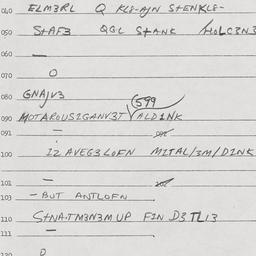 040 ELM3RL Q KL8-AJN STENKL8-
050 STAF3 QGL STANK HOLC3N3
060 —
070 O
080 GNAJV3
599
090 MOTAROUSIGANV3T VALDINK
091 —
100 IZ AVEG3LOFN MITAL/3M/DINK
101 —
103 —BUT ANTLOFN
110 STNA.TM3N3M UP FIN D3TLI3
111 —
120 O